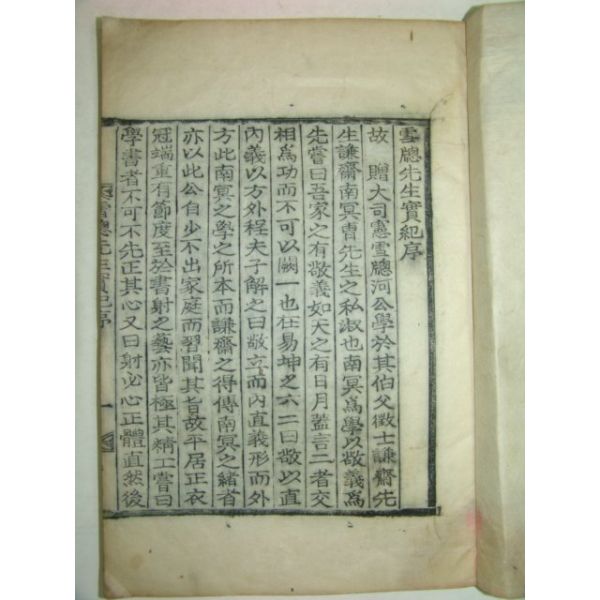 雪牕先生實紀序
故 贈大司憲雪牕河公學於其伯父徵士謙齋先
生謙齋南冥曺先生之私淑也南冥爲學以敬義爲
先嘗曰吾家之有敬義如天之有日月蓋言二者交
相爲功而不可以闕一也在易坤之六二曰敬以直
內義以方外程夫子解之曰敬立而內直義形而外
方此南冥之學之所本而謙齋之得傳南冥之緖者
亦以此公自少不出家庭而習聞其旨故平居正衣
冠端重有節度至於書射之藝亦皆極其精工嘗曰
學書者不可不先正其心又曰射必心正體直然後
雪牕先生實紀序
一